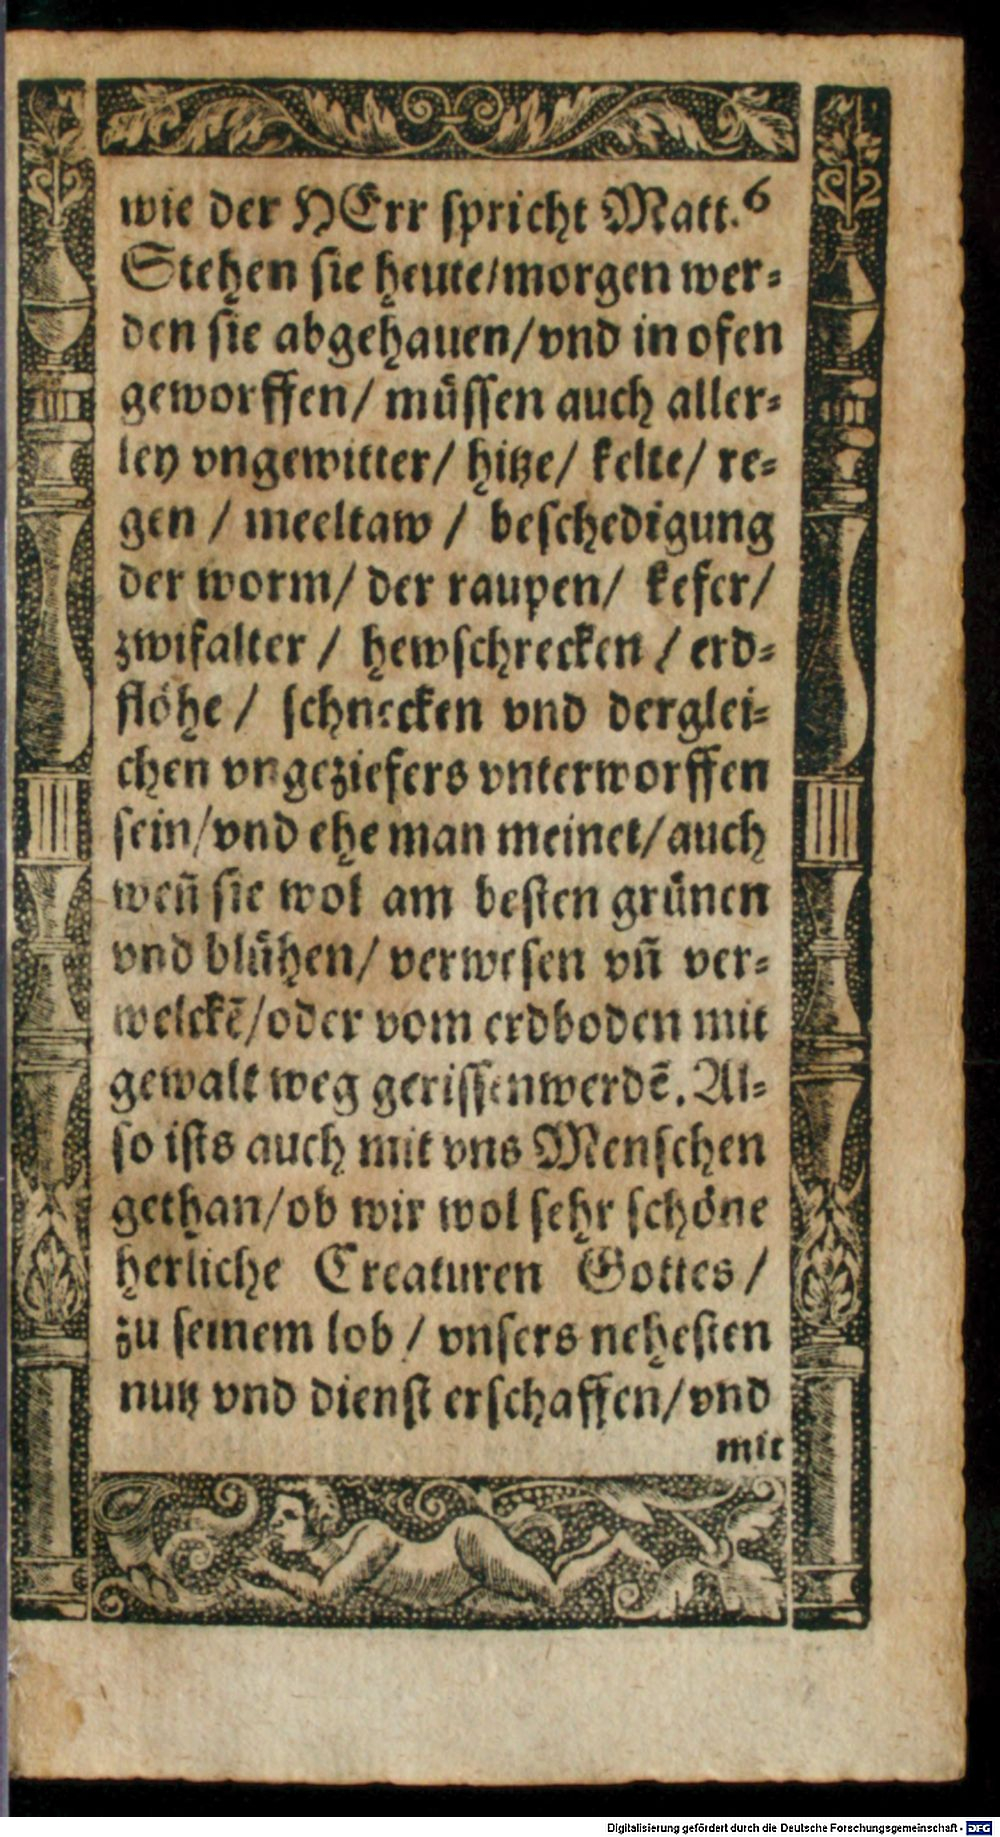 wie der HErr spricht Matt. 6
Stehen sie heute/morgen wer⸗
den sie abgehauen/vnd in ofen
geworffen/ müssen auch aller⸗
ley vngewitter/ hitze/ kelte/ re⸗
gen / meeltaw / beschedigung
der worm/ der raupen/ kefer/
zwifalter / hewschrecken / erd⸗
flöhe / schnecken vnd derglei⸗
chen vngeziefers vnterworffen
sein/vnd ehe man meinet/auch
weñ sie wol am besten grünen
vnd blühen/ verwesen vñ ver⸗
welckẽ/oder vom erdboden mit
gewalt weg gerissen werdẽ. Al⸗
so ists auch mit vns Menschen
gethan/ob wir wol sehr schöne
herliche Creaturen Gottes /
zu seinem lob / vnsers nehesten
nutz vnd dienst erschaffen/vnd
mit
Digitalisierung gefördert durch die Deutsche Forschungsgemeinschaft - DFG